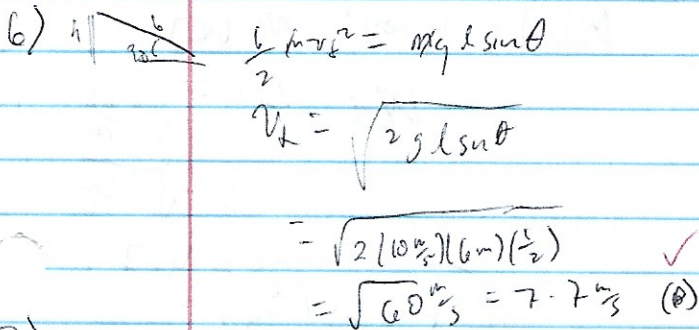 6) h 6 30° 1/2 m v_f² = mg l sinθ
v_f = √(2 g l sinθ)
= √(2 (10 m/s)(6m)(1/2)) ✓
= √60 m/s = 7.7 m/s (B)